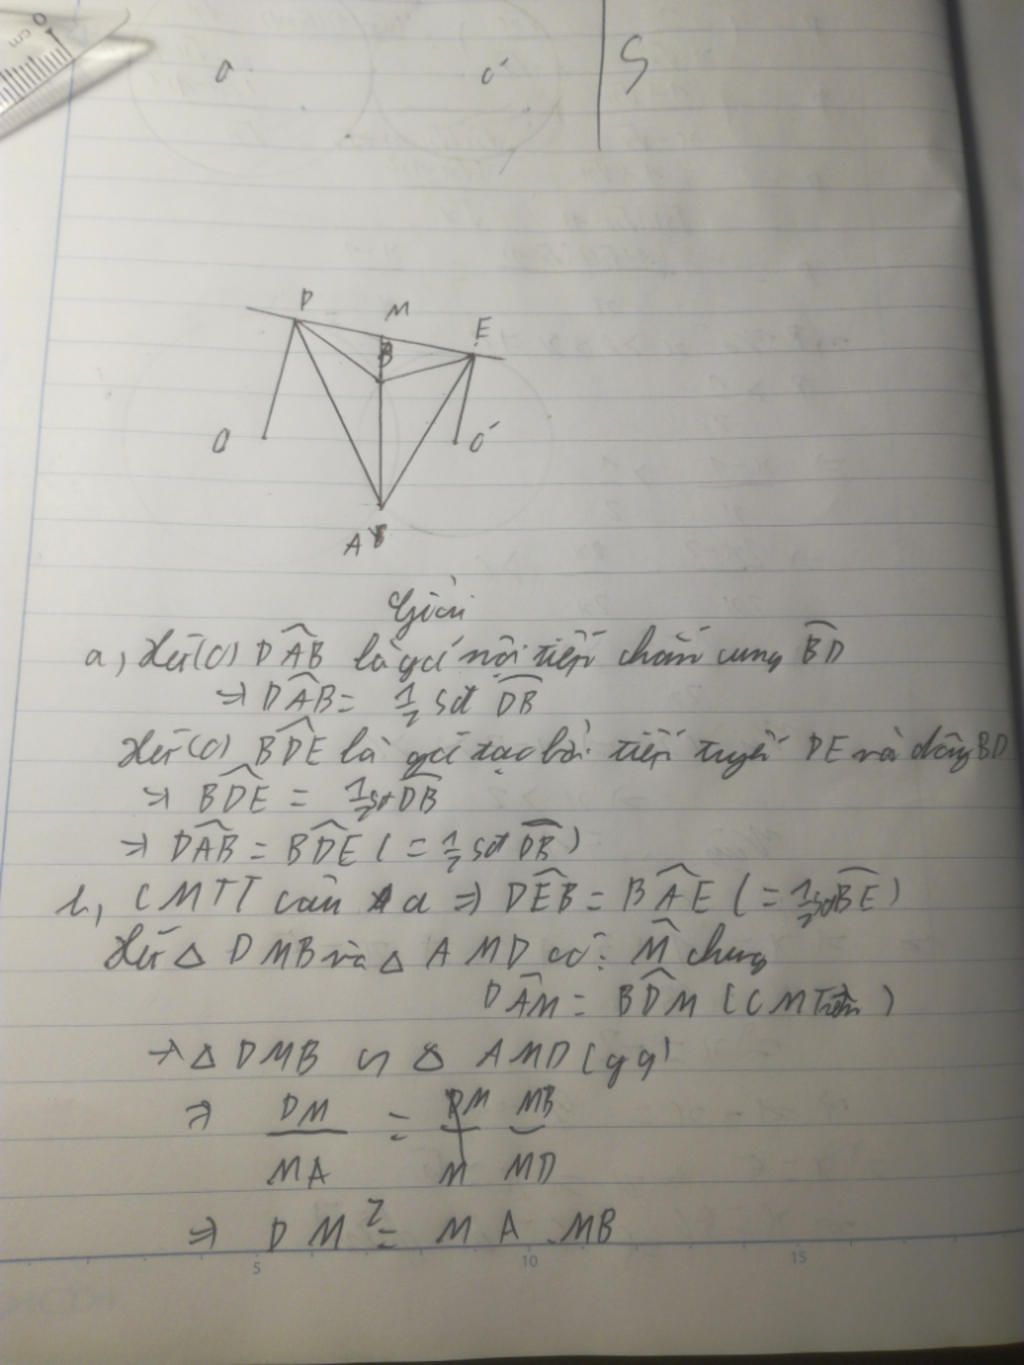 0
cm
O
O'
S
D
M
E
B
O
O'
A
Giải
a, Xét (O) DAB là góc nội tiếp chắn cung BD
=> DAB = 1/2 sđ DB
Xét (O) BDE là góc tạo bởi tiếp tuyến DE và dây BD
=> BDE = 1/2 sđ DB
=> DAB = BDE ( = 1/2 sđ DB )
b, CMTT câu a => DEB = BAE ( = 1/2 sđ BE )
Xét Δ DMB và Δ AMD có: M chung
DAM = BDM ( CM Trên )
=> Δ DMB ∽ Δ AMD ( gg )
=> DM/MA = MB/MD
=> DM² = MA . MB
5 10 15